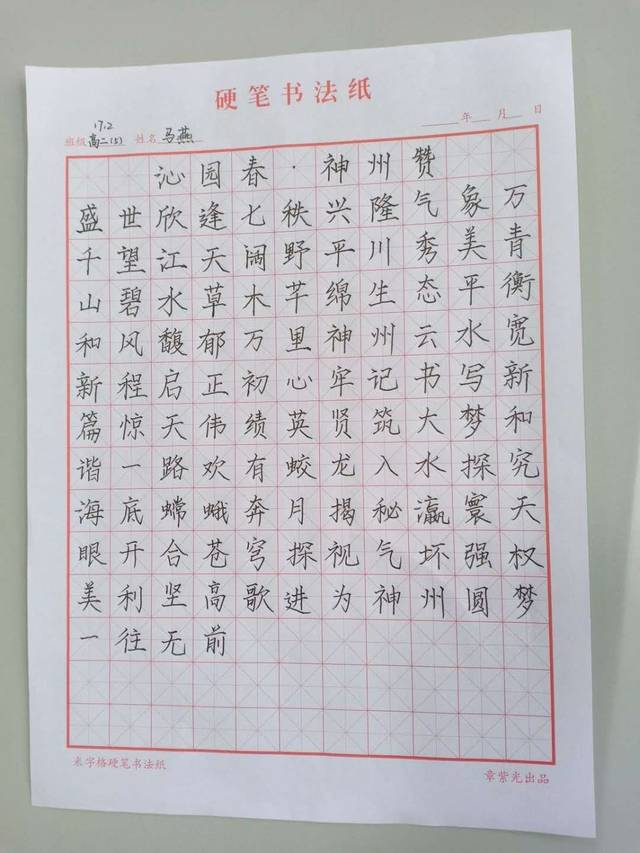 硬笔书法纸
17.2
班级 高二(5) 姓名 马燕 年 月 日
沁园春·神州赞
盛世欣逢七秩兴隆气象万
千望江天阔野平川秀美青
山碧水草木芊绵生态平衡
和风馥郁万里神州云水宽
新程启正初心牢记书写新
篇惊天伟绩英贤筑大梦和
谐一路欢有蛟龙入水探究
海底嫦娥奔月揭秘瀛寰天
眼开合苍穹探视气坏强权
美利坚高歌进为神州圆梦
一往无前
米字格硬笔书法纸 章紫光出品